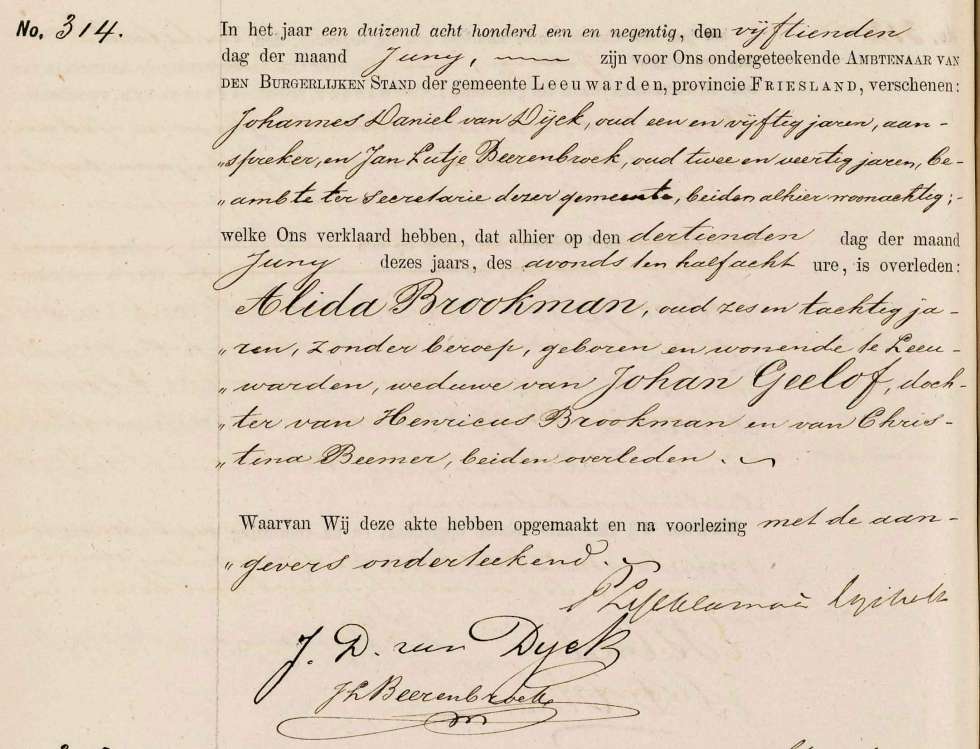 No. 314.
In het jaar een duizend acht honderd een en negentig, den vijftienden
dag der maand Juny, zijn voor Ons ondergeteekende AMBTENAAR VAN
DEN BURGERLIJKEN STAND der gemeente Leeuwarden, provincie FRIESLAND, verschenen:
Johannes Daniel van Dijck, oud een en vijftig jaren, aan-
„spreker, en Jan Lutje Beerenbroek, oud twee en veertig jaren, be-
„ambte ter secretarie dezer gemeente, beiden alhier woonachtig;-
welke Ons verklaard hebben, dat alhier op den dertienden dag der maand
Juny dezes jaars, des avonds ten half acht ure, is overleden:
Alida Brookman, oud zes en tachtig ja-
„ren, zonder beroep, geboren en wonende te Leeu-
„warden, weduwe van Johan Geelof, doch-
„ter van Henricus Brookman en van Chris-
„tina Beemer, beiden overleden.
Waarvan Wij deze akte hebben opgemaakt en na voorlezing met de aan-
„gevers onderteekend.
J. D. van Dyck
JLBeerenbroek